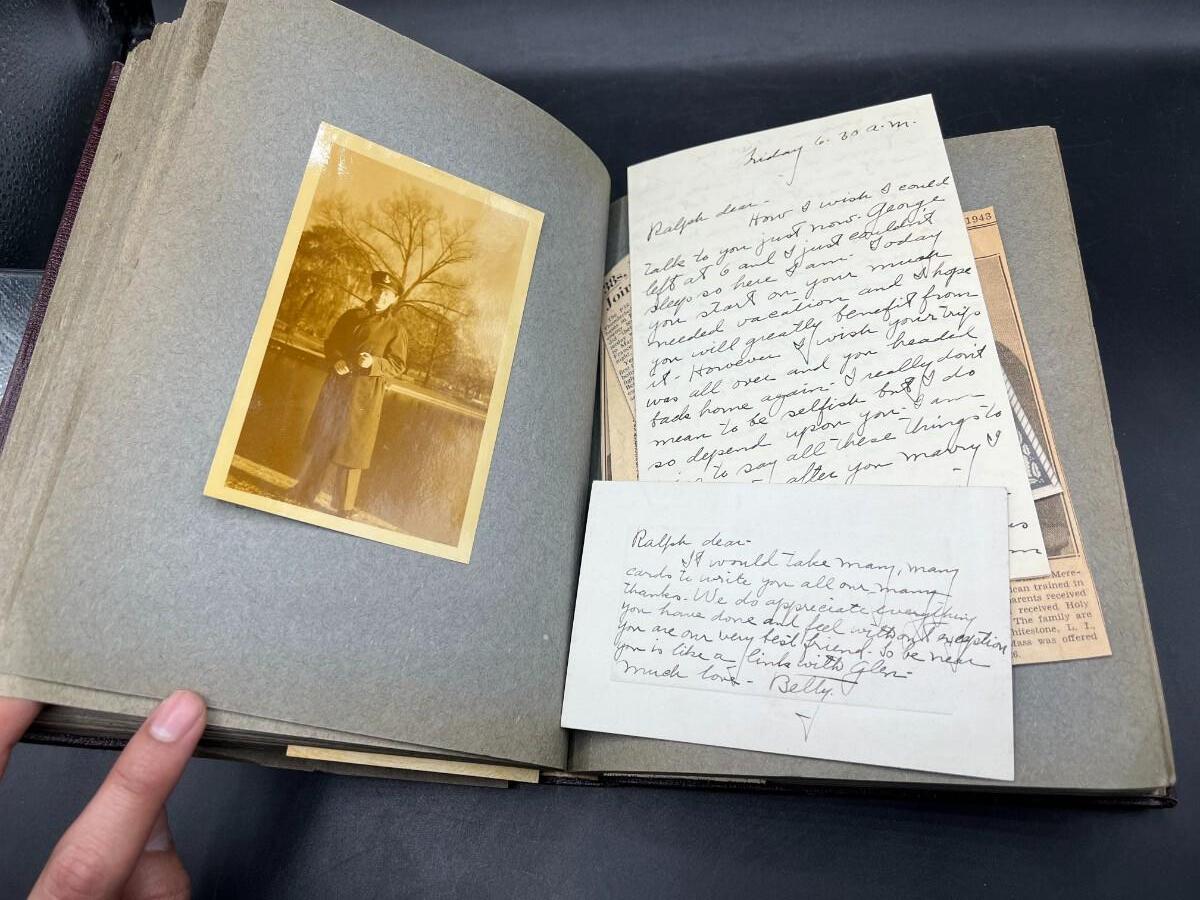 Friday 6.30 a.m.
Ralph dear-
How I wish I could
talk to you just now. George
left at 6 and I just couldn't
sleep so here I am. Today
you start on your much
needed vacation and I hope
you will greatly benefit from
it. However I wish your trip
was all over and you headed
back home again. I really don't
mean to be selfish but I do
so depend upon you. I am
to say all these things to
after you marry I
Ralph dear-
It would take many, many
cards to write you all our many
thanks. We do appreciate everything
you have done and feel without exception
you are our very best friend. To be near
you is like a link with Glen-
Much love- Betty.
1943
Join
Mere-
can trained in
parents received
received Holy
The family are
hitestone, L. I.,
Mass was offered
6.